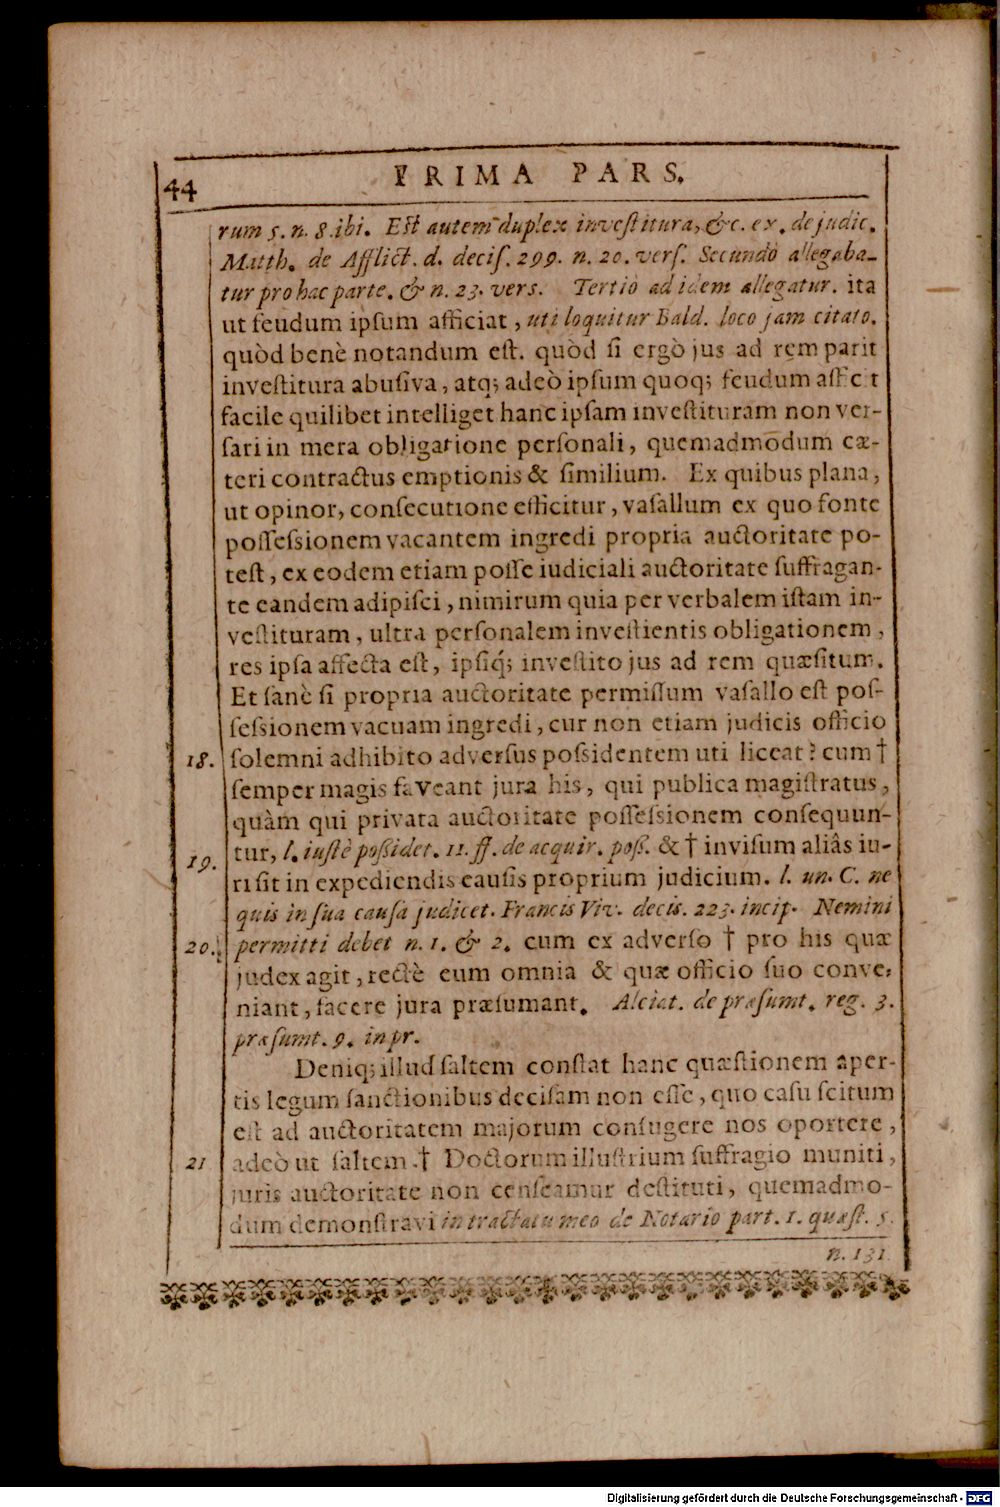 44 PRIMA PARS.
rum 5. n. 8. ibi. Est autem duplex investitura, &c. ex. de judic.
Matth. de Afflict. d. decis. 299. n. 20. vers. Secundò allegaba-
tur pro hac parte. & n. 23. vers. Tertiò ad idem allegatur. ita
ut feudum ipsum afficiat, uti loquitur Bald. loco jam citato.
quòd benè notandum est. quòd si ergò jus ad rem parit
investitura abusiva, atq; adeò ipsum quoq; feudum afficit
facile quilibet intelliget hanc ipsam investituram non ver-
sari in mera obligatione personali, quemadmodum cæ-
teri contractus emptionis & similium. Ex quibus plana,
ut opinor, consecutione efficitur, vasallum ex quo fonte
possessionem vacantem ingredi propria auctoritate po-
test, ex eodem etiam posse iudiciali auctoritate suffragan-
te eandem adipisci, nimirum quia per verbalem istam in-
vestituram, ultra personalem investientis obligationem,
res ipsa affecta est, ipsiq́; investito jus ad rem quæsitum.
Et sanè si propria auctoritate permissum vasallo est pos-
sessionem vacuam ingredi, cur non etiam judicis officio
18. solemni adhibito adversus possidentem uti liceat? cum †
semper magis faveant jura his, qui publica magistratus,
quàm qui privata auctoritate possessionem consequun-
19. tur, l. iustè possidet. 11. ff. de acquir. poss. & † invisum aliâs iu-
ri sit in expediendis causis proprium judicium. l. un. C. ne
quis in sua causa judicet. Francis Viv. decis. 223. incip. Nemini
20. permitti debet n. 1. & 2. cum ex adverso † pro his quæ
judex agit, rectè eum omnia & quæ officio suo conve-
niant, facere jura præsumant. Alciat. de præsumt. reg. 3.
præsumt. 9. in pr.
Deniq; illud saltem constat hanc quæstionem aper-
tis legum sanctionibus decisam non esse, quo casu scitum
est ad auctoritatem majorum confugere nos oportere,
21 adeò ut saltem † Doctorum illustrium suffragio muniti,
juris auctoritate non censeamur destituti, quemadmo-
dum demonstravi in tractatu meo de Notario part. 1. quæst. 5.
n. 131.
Digitalisierung gefördert durch die Deutsche Forschungsgemeinschaft - DFG